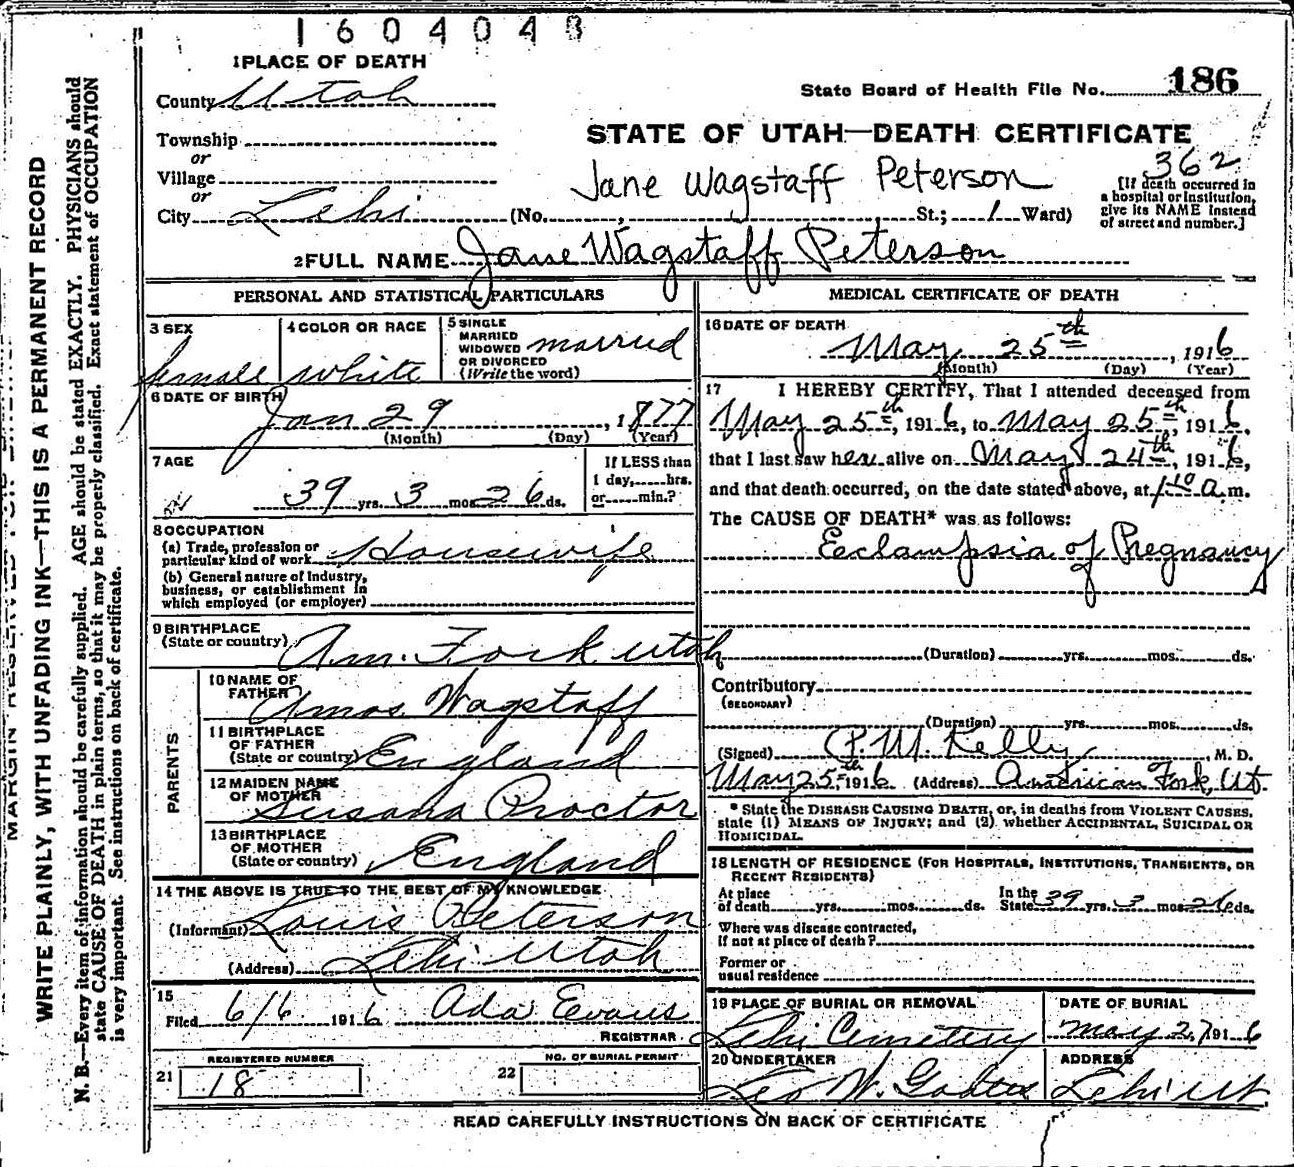 1604048
1 PLACE OF DEATH
County Utah
State Board of Health File No. 186
Township
or
Village
or
City Lehi (No. , St.; 1 Ward)
STATE OF UTAH—DEATH CERTIFICATE
362
Jane Wagstaff Peterson
[If death occurred in
a hospital or institution,
give its NAME instead
of street and number.]
2 FULL NAME Jane Wagstaff Peterson
PERSONAL AND STATISTICAL PARTICULARS
3 SEX
female
4 COLOR OR RACE
white
5 SINGLE
MARRIED
WIDOWED
OR DIVORCED
(Write the word)
married
6 DATE OF BIRTH
Jan 29, 1877
(Month) (Day) (Year)
7 AGE
39 yrs. 3 mos. 26 ds.
If LESS than
1 day, hrs.
or min.?
8 OCCUPATION
(a) Trade, profession or
particular kind of work Housewife
(b) General nature of Industry,
business, or establishment in
which employed (or employer)
9 BIRTHPLACE
(State or country) Am. Fork Utah
PARENTS
10 NAME OF
FATHER Amos Wagstaff
11 BIRTHPLACE
OF FATHER
(State or country) England
12 MAIDEN NAME
OF MOTHER Susana Proctor
13 BIRTHPLACE
OF MOTHER
(State or country) England
14 THE ABOVE IS TRUE TO THE BEST OF MY KNOWLEDGE
(Informant) Louis Peterson
(Address) Lehi Utah
15
Filed 6/6 1916 Ada Evans
REGISTRAR
REGISTERED NUMBER
21 18
NO. OF BURIAL PERMIT
22
MEDICAL CERTIFICATE OF DEATH
16 DATE OF DEATH
May 25th, 1916
(Month) (Day) (Year)
17 I HEREBY CERTIFY, That I attended deceased from
May 25th, 1916, to May 25th, 1916,
that I last saw her alive on May 24th, 1916,
and that death occurred, on the date stated above, at 1 10 a.m.
The CAUSE OF DEATH* was as follows:
Ecclampsia of Pregnancy
(Duration) yrs. mos. ds.
Contributory
(SECONDARY)
(Duration) yrs. mos. ds.
(Signed) P. M. Kelly M. D.
May 25th, 1916 (Address) American Fork, Ut.
* State the DISEASE CAUSING DEATH, or, in deaths from VIOLENT CAUSES,
state (1) MEANS OF INJURY; and (2) whether ACCIDENTAL, SUICIDAL OR
HOMICIDAL.
18 LENGTH OF RESIDENCE (FOR HOSPITALS, INSTITUTIONS, TRANSIENTS, OR
RECENT RESIDENTS)
At place
of death yrs. mos. ds.
In the
State 39 yrs. 3 mos. 26 ds.
Where was disease contracted,
If not at place of death?
Former or
usual residence
19 PLACE OF BURIAL OR REMOVAL
Lehi Cemetery
DATE OF BURIAL
May 27, 1916
20 UNDERTAKER
Leo W. Goates
ADDRESS
Lehi Ut.
READ CAREFULLY INSTRUCTIONS ON BACK OF CERTIFICATE
WRITE PLAINLY, WITH UNFADING INK—THIS IS A PERMANENT RECORD
N. B.—Every item of information should be carefully supplied. AGE should be stated EXACTLY. PHYSICIANS should
state CAUSE OF DEATH in plain terms, so that it may be properly classified. Exact statement of OCCUPATION
is very important. See instructions on back of certificate.